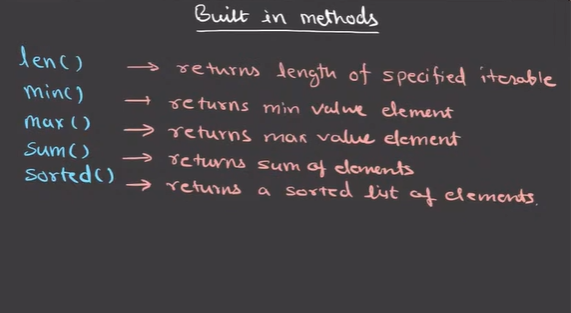 Built in methods
len() → returns length of specified iterable
min() → returns min value element
max() → returns max value element
sum() → returns sum of elements
sorted() → returns a sorted list of elements.